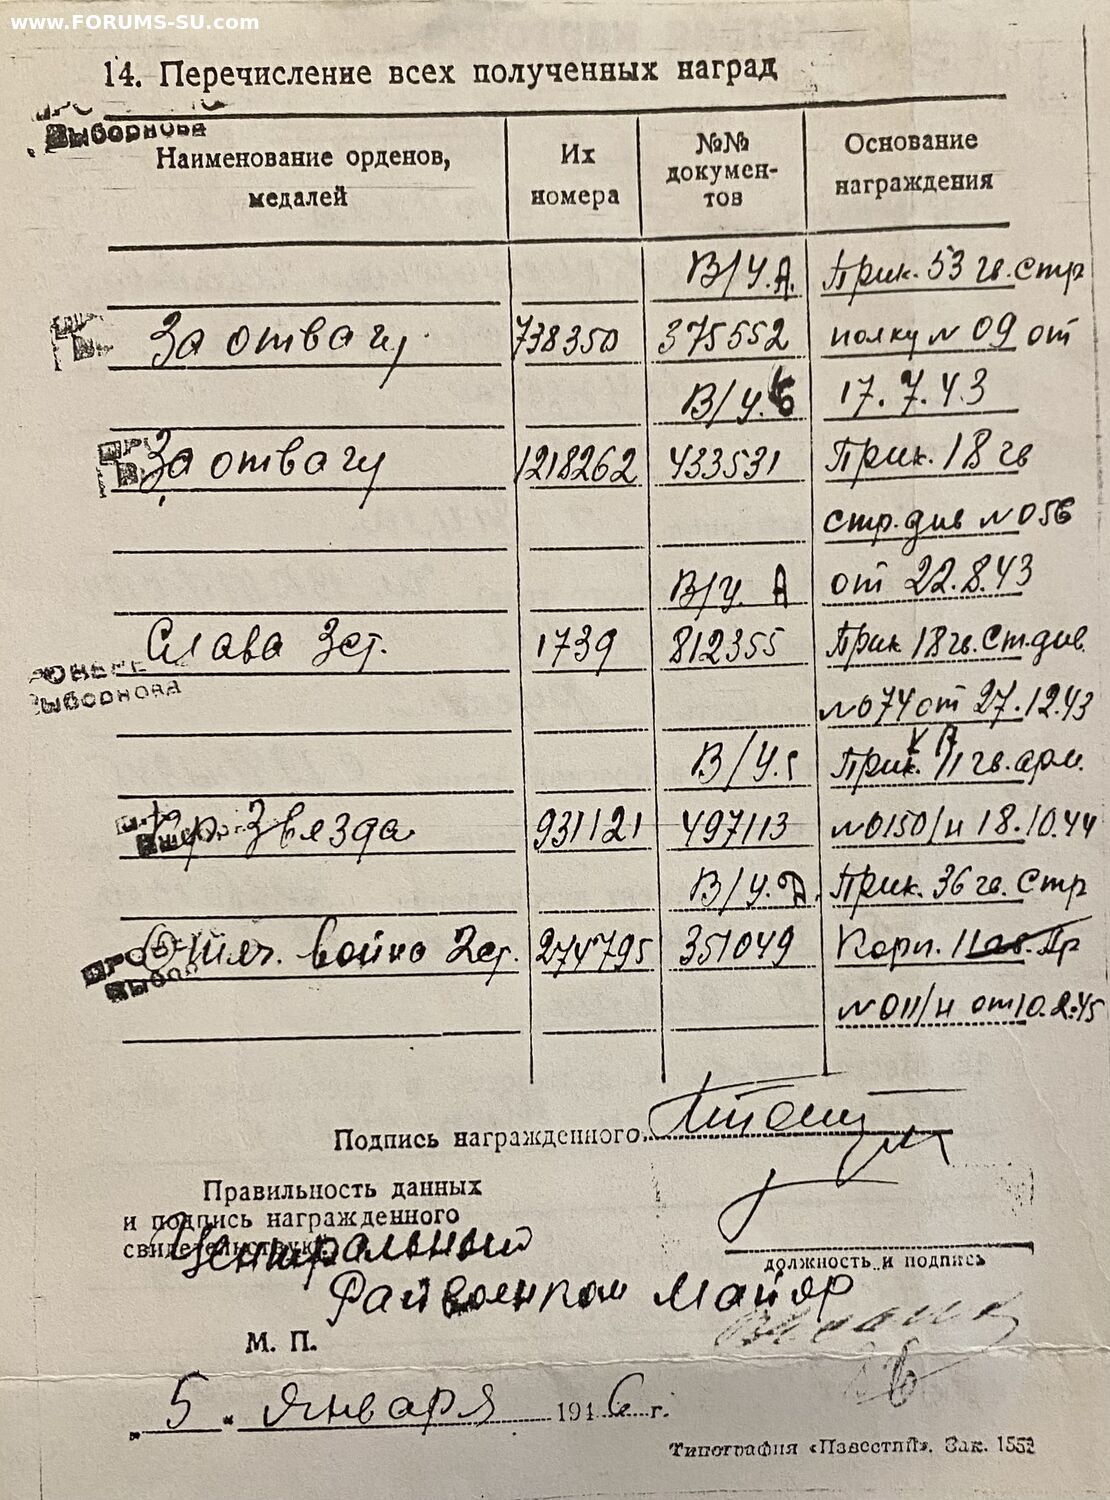 www.FORUMS-SU.com
14. Перечисление всех полученных наград
Выборнова
Наименование орденов, медалей
Их номера
№№ докумен-тов
Основание награждения
В/у.А. Прик. 53 гв. стр
За отвагу 738350 375552 полку № 09 от
В/у.Б 17.7.43
За отвагу 1218262 433531 Прик. 18 гв
стр. див № 056
В/у. А от 22.8.43
Слава 3 ст. 1739 812355 Прик 18 гв. Ст. див.
Выборнова
№ 074 от 27.12.43
В/у. Прик. 11 гв. арм.
Кр. Звезда 931121 497113 № 0150/н 18.10.44
В/у. Д. Прик. 36 гв. Стр
Отеч. война 2 ст. 274795 351049 Корп.
№ 011/н от 10.2.45
Подпись награжденного
Правильность данных
и подпись награжденного
свидетельствую
Центральный
должность и подпись
Райвоенком майор
М. П.
5. Января 1946 г.
Типография «Известий». Зак. 1552